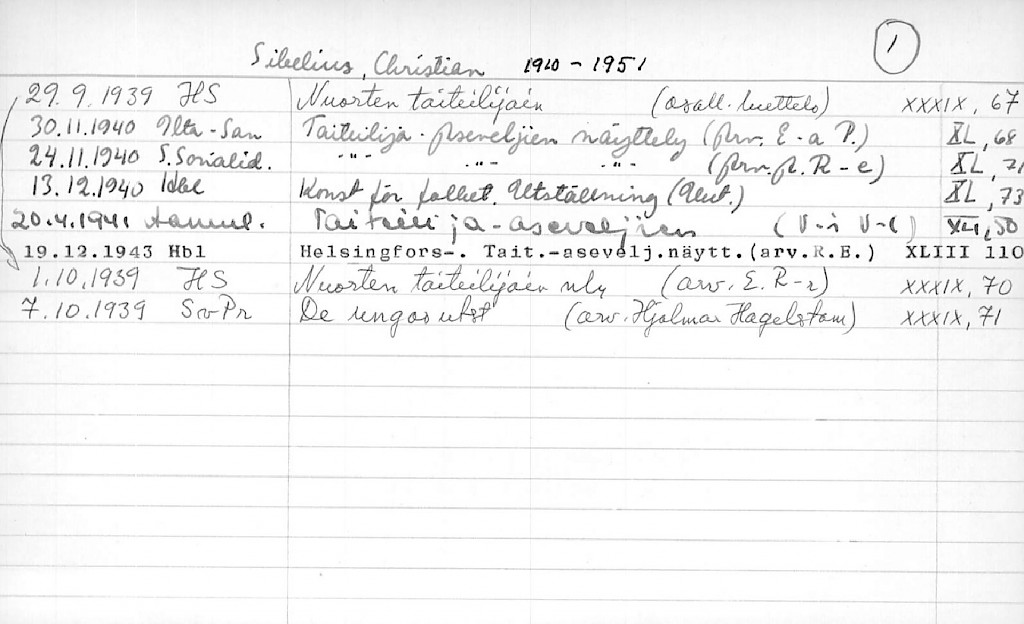 1
Sibelius, Christian 1910-1951
29.9.1939 HS Nuorten taiteilijain (osall. luettelo) XXXIX, 67
30.11.1940 Ilta-San Taiteilija-aseveljien näyttely (arv. E-a P.) XL, 68
24.11.1940 S. Sosialid. -"- -"- -"- (arv. R-e) XL, 71
13.12.1940 Hbl Konst för folket. Utställning (Anm.) XL, 73
20.4.1941 Aamul. Taiteilija-aseveljien (V-i V-l) XLI, 50
19.12.1943 Hbl Helsingfors-. Tait.-asevelj.näytt.(arv.R.E.) XLIII 110
1.10.1939 HS Nuorten taiteilijain nly (arv. E. R-r) XXXIX, 70
7.10.1939 Sv-Pr De ungas utst (arv. Hjalmar Hagelstam) XXXIX, 71